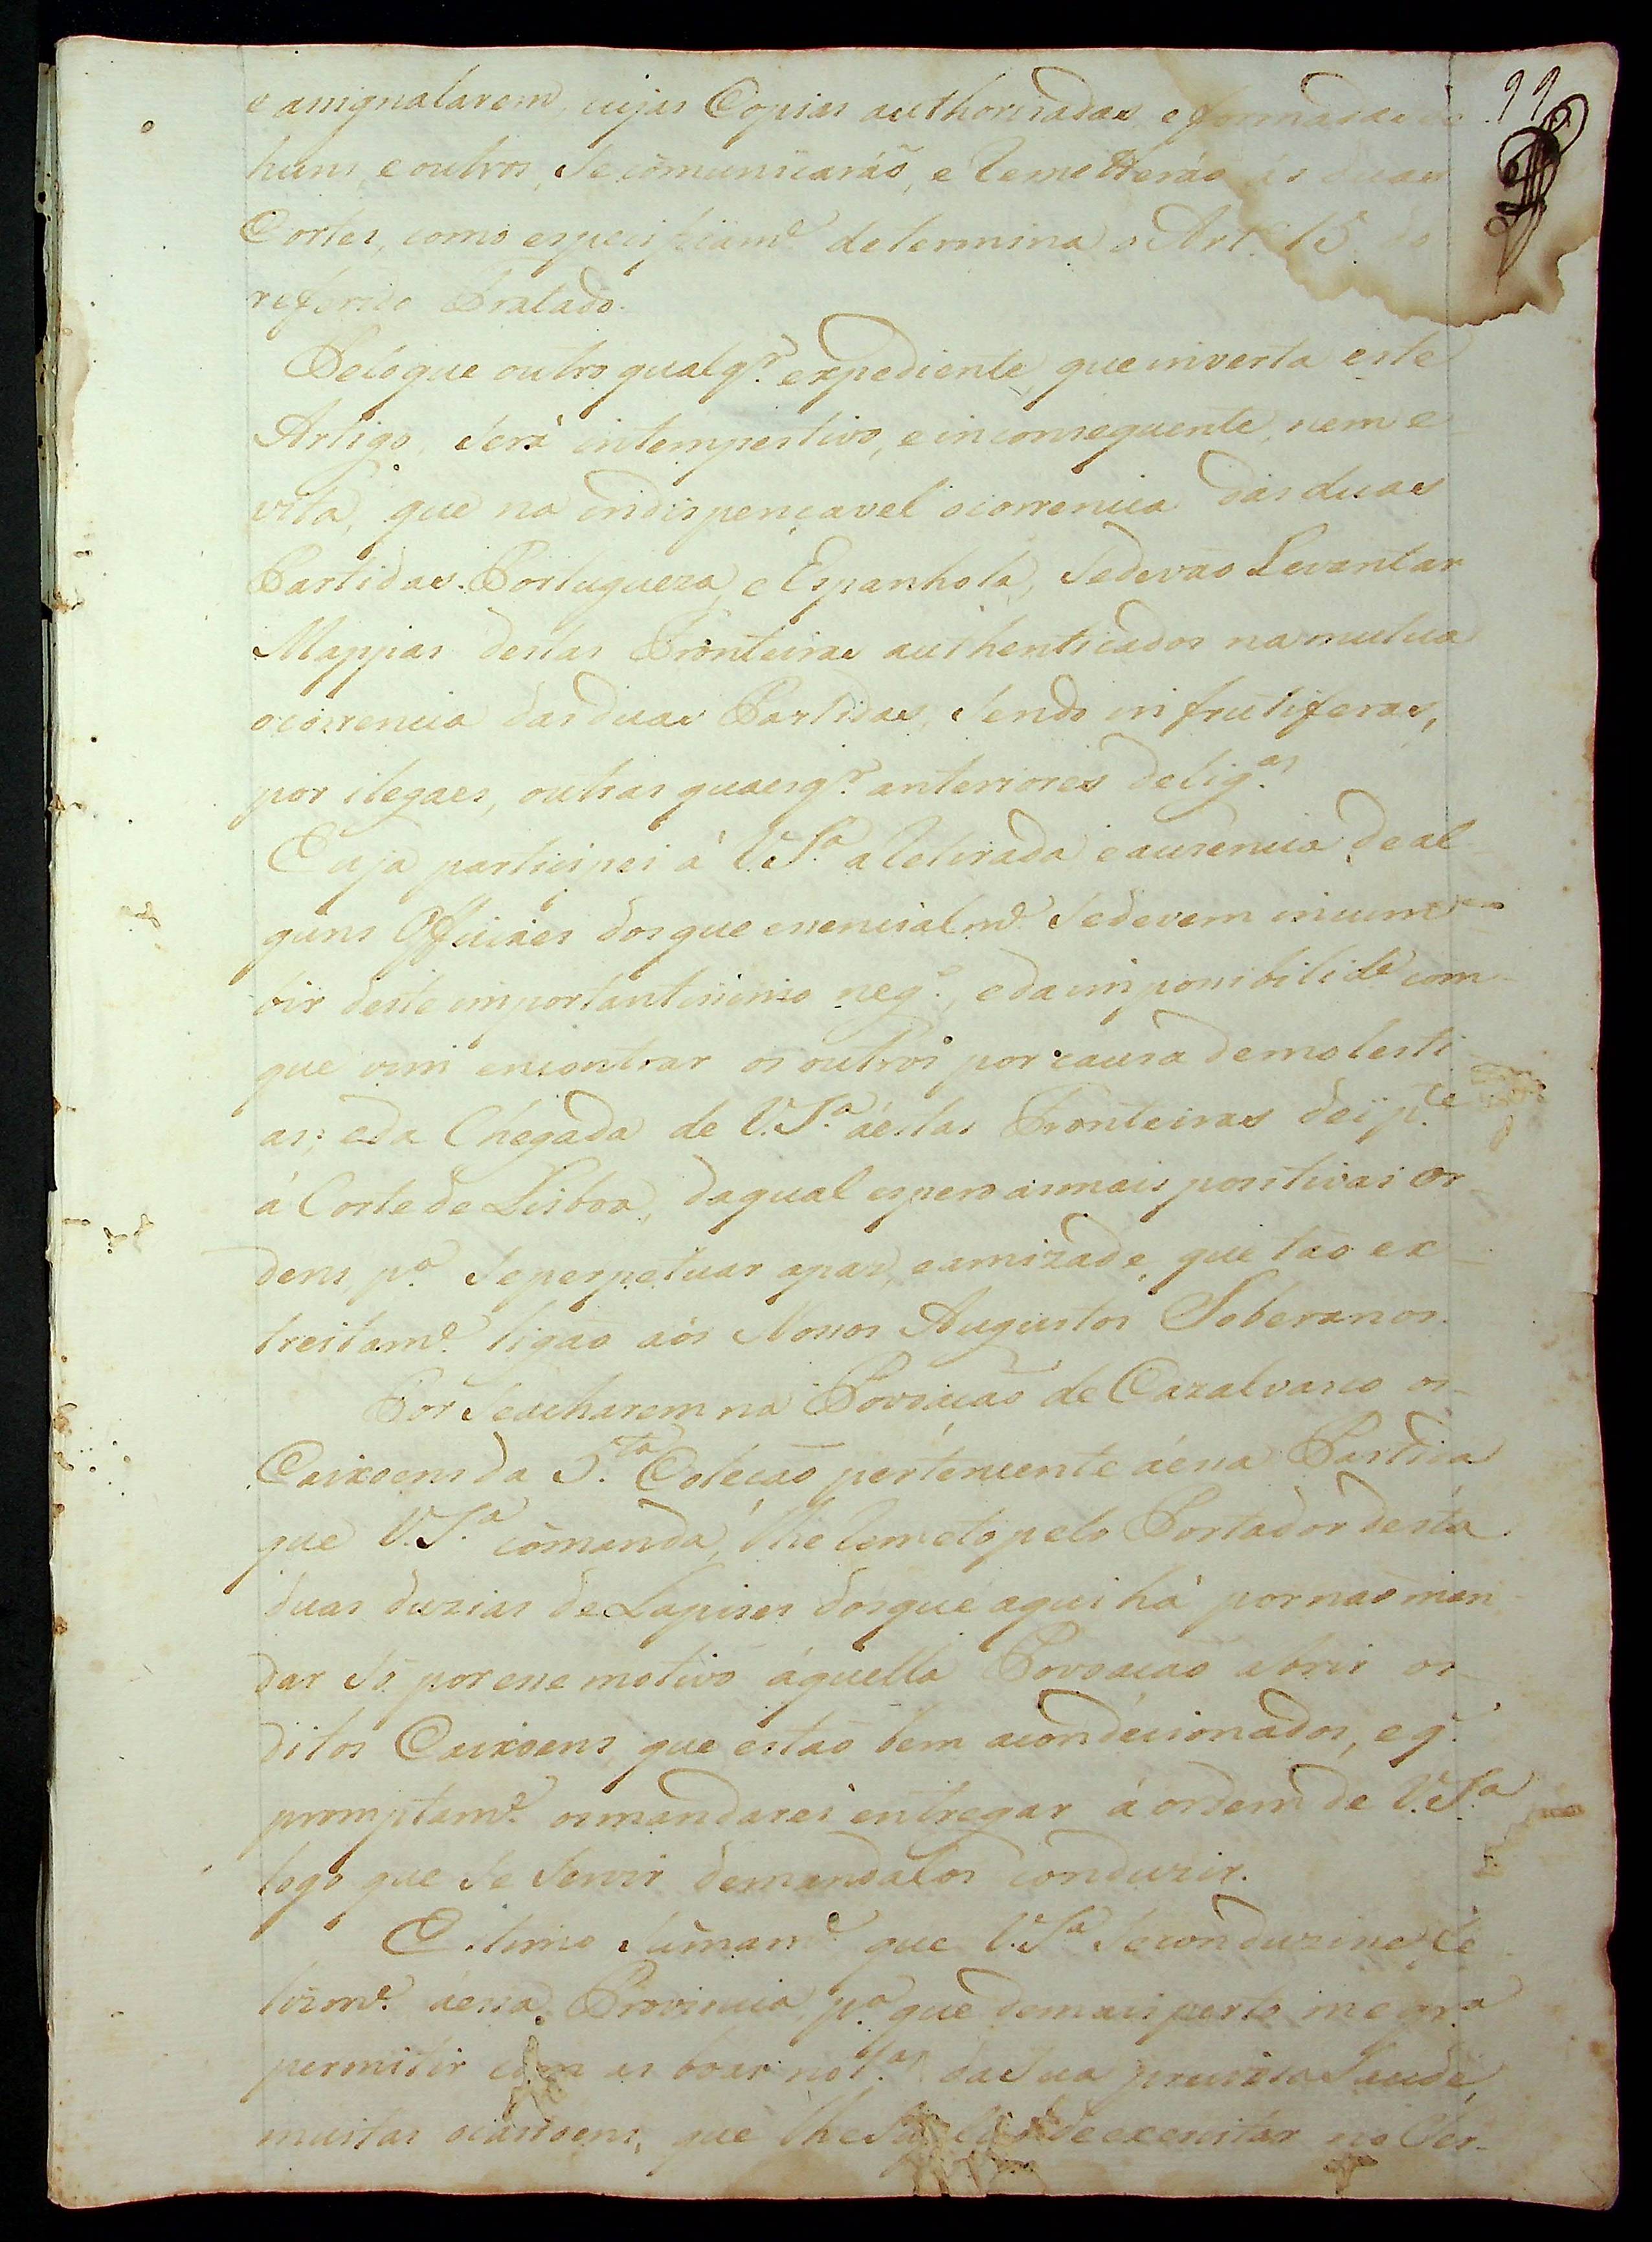 99
e assignalarem, cujas Copias authorisadas e formadas de
huns, e outros, se comunicaráõ, e remetterão ás duas
Cortes, como especificam.e determina o Art.o 15. do
referido Tratado.
Peloque outro qualq.r expediente, que inverta este
Artigo, será intempestivo, e inconsequente, nem e
vita, que na indispençavel ocorrencia das duas
Partidas Portugueza, e Espanhola, sedevão Levantar
Mappas destas Fronteiras authenticados na mutua
ocorrencia das duas Partidas, sendo infrutiferas,
por ilegaes, outras quaesq.r anteriores delig.as
Eu ja participei á V.S.a a retirada, e ausencia de al
guns Officiaes dos que essencialm.e sedevem incum
bir deste importantissimo neg.o, e da impossibilid.e com
que vim encontrar os outros por causa demolesti
as; eda Chegada de V.S.a áestas Fronteiras dei p.te
á Corte de Lisboa, daqual espero as mais positivas or
dens, p.a seperpetuar apaz, e amizade, que tão ex
treitam.e ligão aós Nossos Augustos Soberanos.
Por seacharem na Povoação de Cazalvasco os
Caixoens da 5.ta Coleção pertencente áessa Partida
que V.S.a comanda, lhe remeto pelo Portador desta
duas duzias de Lapises dosque aqui há por não man
dar só por esse motivo áquella Povoacao abrir os
ditos Caixoens, que estão bem acondicionados, e q.
promptam.e os mandarei entregar á ordem de V.S.a
logo que se servir demandalos conduzir.
Estimo sumam.e que V.S.a seconduzisse fe
lizm.e áessa Provincia, p.a que demais perto me
permitir com as boas not.as da sua precioza saude,
muitas ocasioens, que lhe de exercitar no ser-